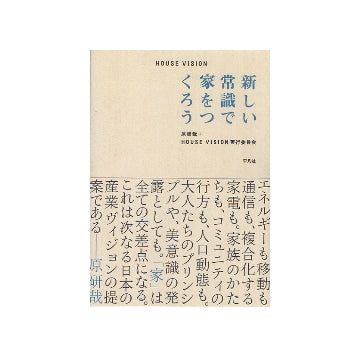 HOUSE VISION
新しい
常識で
家をつ
くろう
原研哉+
HOUSE VISION実行委員会
平凡社
エネルギーも移動も
通信も、複合化する
家電も。家族のかた
ちも、コミュニティの
行方も、人口動態も。
大人たちのプリンシ
プルや、美意識の発
露としても。「家」は
全ての交差点になる。
これは次なる日本の
産業ヴィジョンの提
案である——原研哉